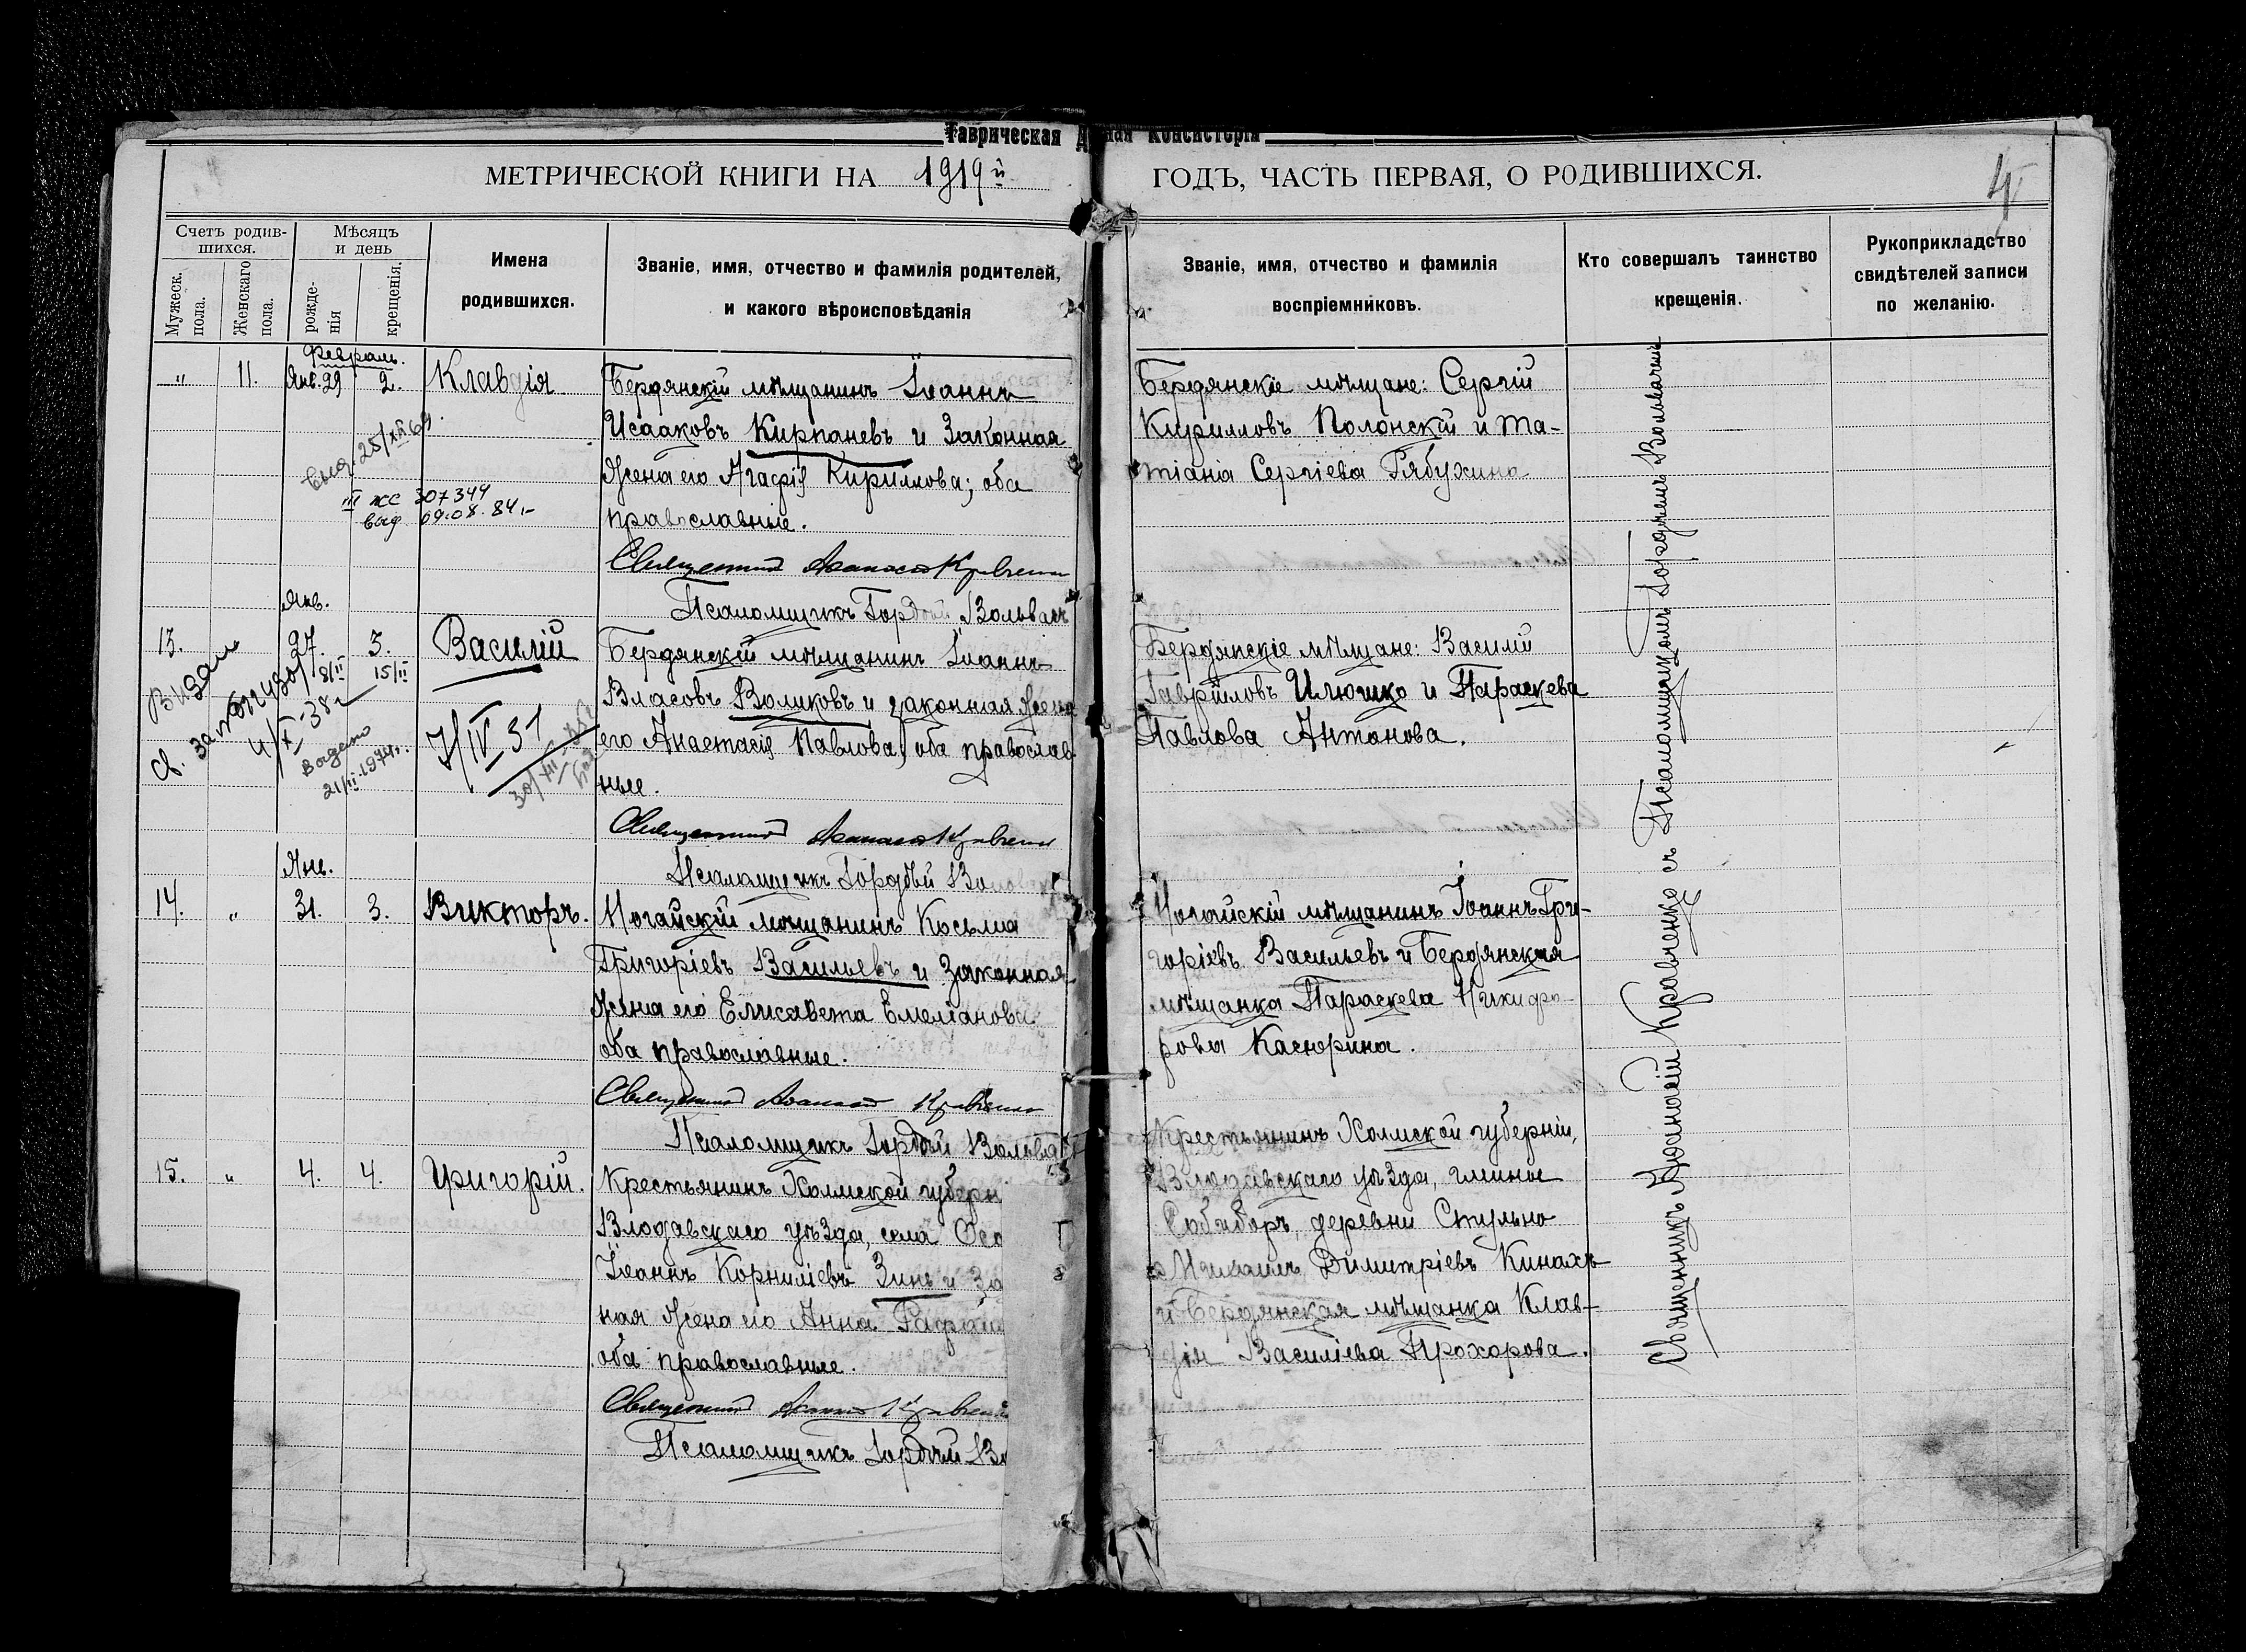 Таврическая Д ная Консисторія
МЕТРИЧЕСКОЙ КНИГИ НА 1919й
ГОДЪ, ЧАСТЬ ПЕРВАЯ, О РОДИВШИХСЯ.
Счетъ родив-
шихся.
Мужеск. пола.
Женскаго пола.
Мѣсяцъ
и день
рожде-
нія
крещенія.
Имена
родившихся.
Званіе, имя, отчество и фамилія родителей,
и какого вѣроисповѣданія
Званіе, имя, отчество и фамилія
воспріемниковъ.
Кто совершалъ таинство
крещенія.
Рукоприкладство
свидѣтелей записи
по желанію.
Февраль.
" 11. Янв. 29 2. Клавдія
Бердянскій мѣщанинъ Іоаннъ
Исааковъ Кирпаневъ и законная
жена его Агафія Кириллова; оба
православные.
Священникъ Аѳанасій Кравченко
Псаломщикъ Гордѣй Вольвач
Бердянскіе мѣщане: Сергій
Кирилловъ Полонскій и Та-
тіана Сергіева Рябухина
выд. 25/XII 69
III ЖС 307344
выд 09.08.84.-
Янв.
13. 27. 3. Василій
Бердянскій мѣщанинъ Іоаннъ
Власовъ Воликовъ и законная жена
его Анастасія Павлова, оба православ-
ные.
Священникъ Аѳанасій Кравченко
Псаломщикъ Гордѣй
Бердянскіе мѣщане: Василій
Гавріиловъ Илюшко и Параскева
Павлова Антонова.
8/II 15/II
4/X-38г
Выдано
21/II.1974г.
7/IV 51
Янв.
14. " 31. 3. Викторъ.
Ногайскій мѣщанинъ Косьма
Григоріевъ Васильевъ и законная
жена его Елисавета Емеліанова
оба православные.
Священникъ Аѳанасій Кравченко
Псаломщикъ Гордѣй Вольва
Ногайскій мѣщанинъ Іоаннъ Гри-
горіевъ Васильевъ и Бердянская
мѣщанка Параскева Никифо-
рова Касюрина.
15. " 4. 4. Григорій.
Крестьянинъ Холмской губерн
Влодавскаго уѣзда, села
Іоаннъ Корниліевъ Зинь и за
ная жена его Анна
оба православные.
Священникъ Аѳанасій Кравченко
Псаломщикъ Гордѣй Во
Крестьянинъ Холмской губерніи,
Влодавскаго уѣзда, гмины
Собиборъ, деревни Стульно
Михаилъ Димитріевъ Кинахъ
и Бердянская мѣщанка Клав-
дія Василіева Прохорова.
Священникъ Аѳанасій Кравченко съ Псаломщикомъ Гордѣемъ Вольвачемъ